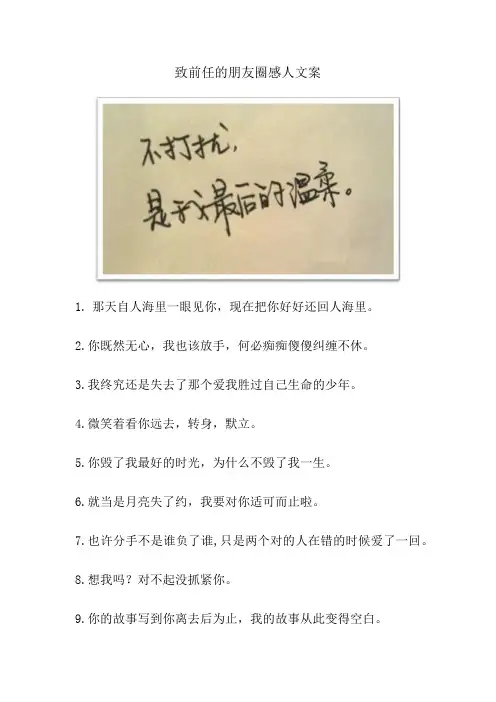 致前任的朋友圈感人文案
不打扰，
是我最后的温柔。
1. 那天自人海里一眼见你，现在把你好好还回人海里。
2.你既然无心，我也该放手，何必痴痴傻傻纠缠不休。
3.我终究还是失去了那个爱我胜过自己生命的少年。
4.微笑着看你远去，转身，默立。
5.你毁了我最好的时光，为什么不毁了我一生。
6.就当是月亮失了约，我要对你适可而止啦。
7.也许分手不是谁负了谁,只是两个对的人在错的时候爱了一回。
8.想我吗？对不起没抓紧你。
9.你的故事写到你离去后为止，我的故事从此变得空白。